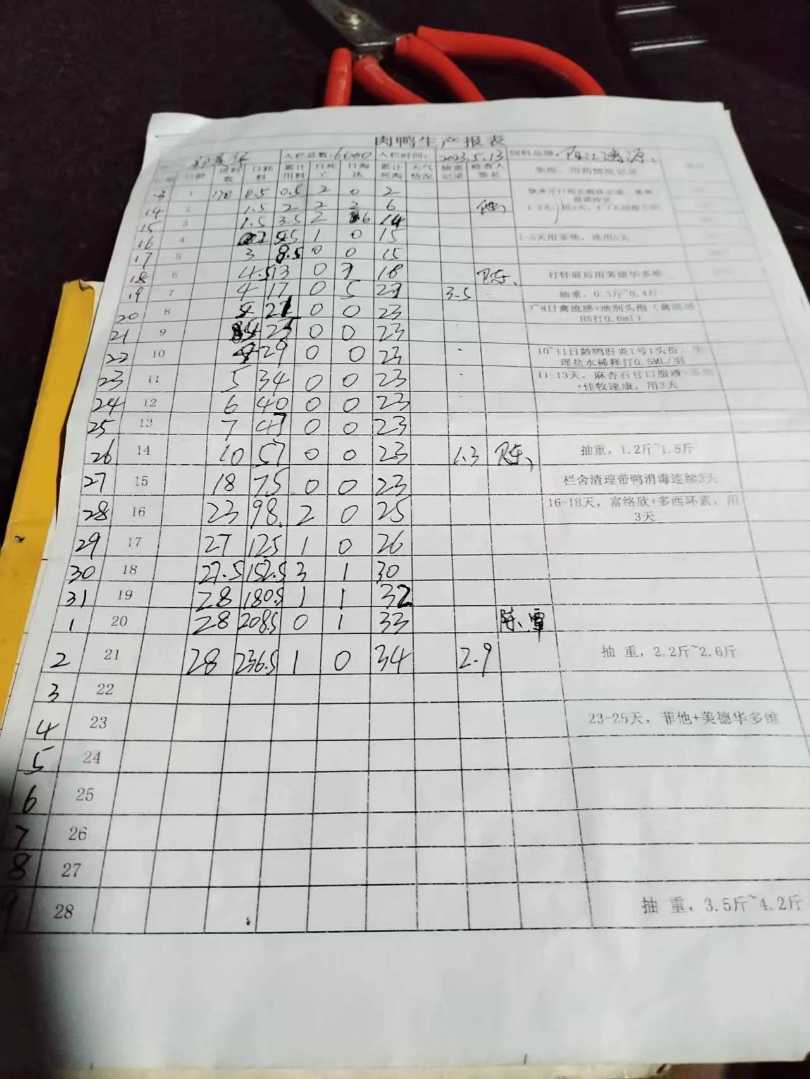 肉鸭生产报表
入栏总数: 6000 入栏时间: 2023.5.13 饲料品牌:
日龄 日耗料 累计用料 日死亡 日淘汰 累计死淘 天气情况 抽重记录 检查人签名 免疫、用药情况记录
1 0.5 0.5 2 0 2
14 1.5 2 2 2 6
15 3 1.5 3.5 2 6 14
16 4 1 0 15 1-5天用多维,连用5天
17 5 3 8.5 0 0 15
18 6 4.5 13 0 3 18 打针前后用美德华多维
19 7 4 17 0 5 23 3.5 抽重,0.3斤~0.4斤
20 8 4 21 0 0 23
21 9 4 25 0 0 23
22 10 4 29 0 0 23
23 11 5 34 0 0 23
24 12 6 40 0 0 23
25 13 7 47 0 0 23
26 14 10 57 0 0 23 1.3 抽重,1.2斤~1.5斤
27 15 18 75 0 0 23 栏舍清理带鸭消毒连续3天
28 16 23 98. 2 0 25 16-18天,富络欣+多西环素,用3天
29 17 27 125 1 0 26
30 18 27.5 152.5 3 1 30
31 19 28 180.5 1 1 32
1 20 28 208.5 0 1 33
2 21 28 236.5 1 0 34 2.9 抽 重,2.2斤~2.6斤
3 22
4 23 23-25天,菲他+美德华多维
5 24
6 25
7 26
8 27
9 28 抽 重,3.5斤~4.2斤